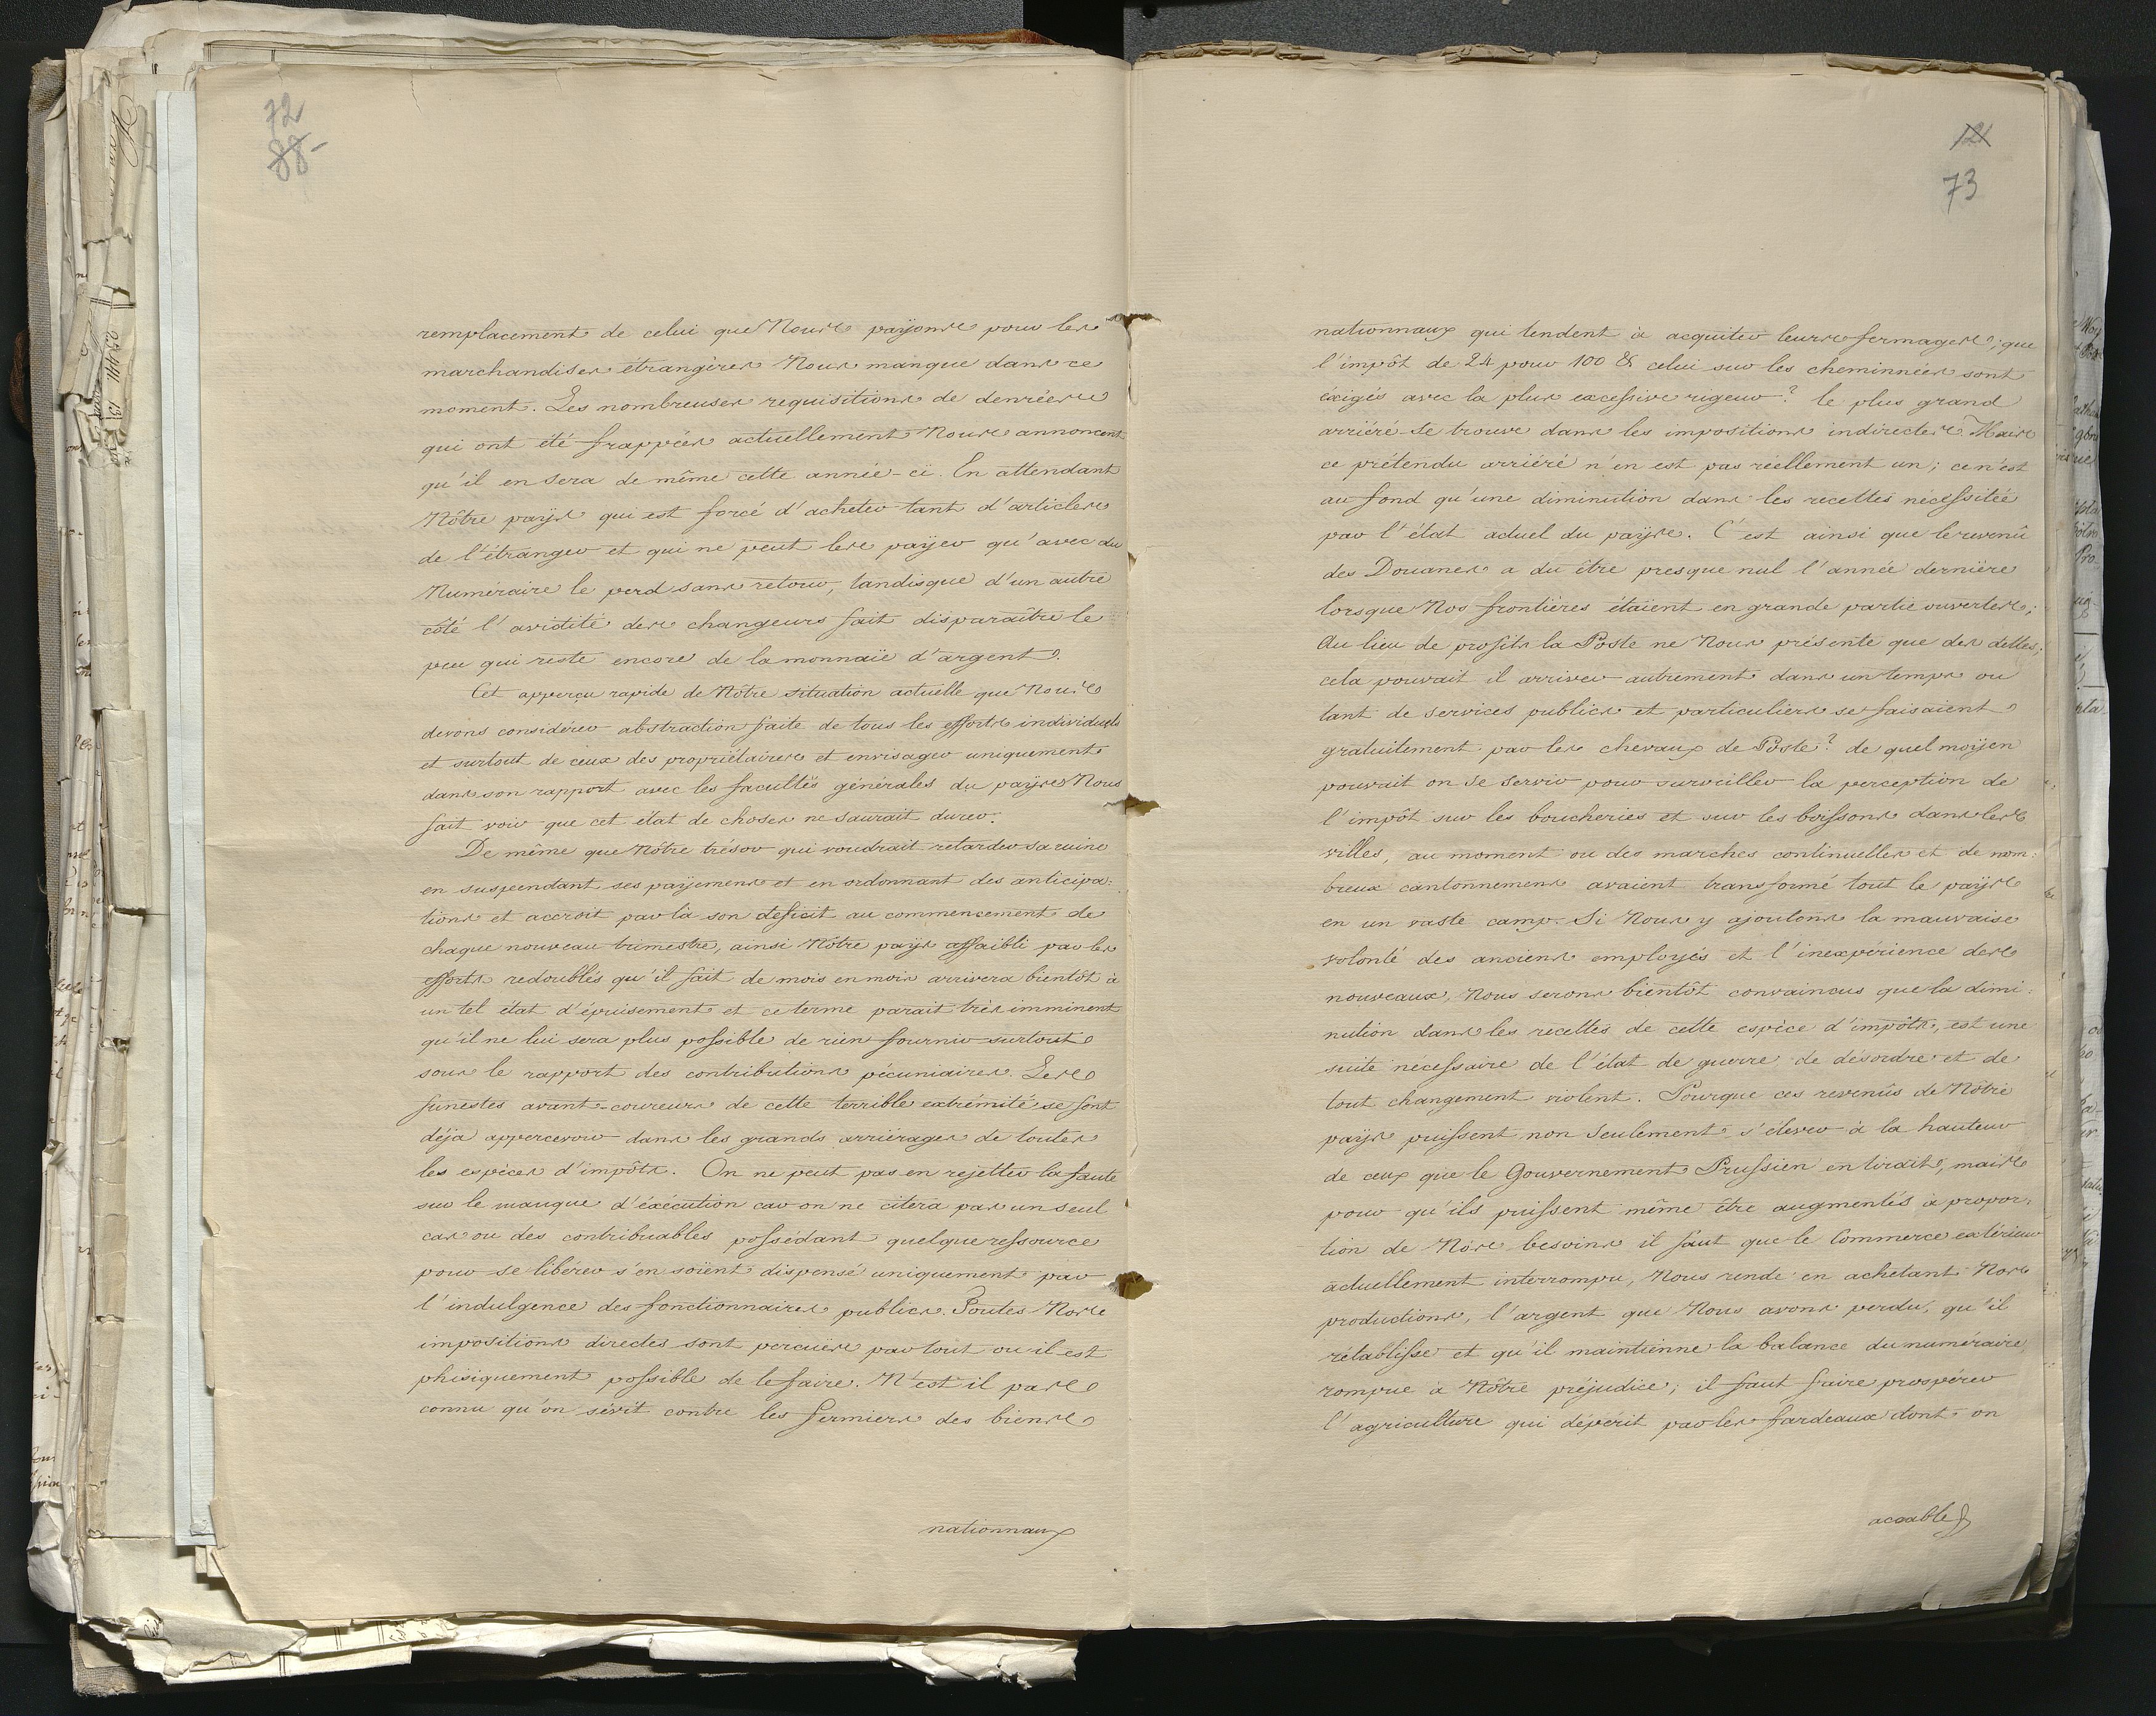 72
88-
remplacement de celui que Nous payïons pour les
marchandises étrangères Nous manque dans ce
moment. Les nombreuses requisitions de denrées
qui ont été frappées actuellement Nous annoncent
qu'il en sera de même cette année-ci. En attendant
Nôtre payïs qui est forcé d'acheter tant d'articles
de l'étranger et qui ne peut les payïer qu'avec du
Numéraire le perd sans retour, tandisque d'un autre
côté l'avidité des changeurs fait disparaître le
peu qui reste encore de la monnaïe d'argent.
Cet apperçu rapide de Nôtre situation actuelle que Nous
devons considérer abstraction faite de tous les efforts individuels
et surtout de ceux des propriétaires et envisager uniquement
dans son rapport avec les facultés générales du payïs Nous
fait voir que cet état de choses ne saurait durer.
De même que Nôtre trésor qui voudrait retarder sa ruine
en suspendant ses payïemens et en ordonnant des anticipa:
tions et accroit par là son deficit au commencement de
chaque nouveau trimestre, ainsi Nôtre payïs affaibli par les
efforts redoublés qu'il fait de mois en mois arrivera bientôt à
un tel état d'épuisement et ce terme parait très imminent
qu'il ne lui sera plus possible de rien fournir surtout
sous le rapport des contributions pécuniaires. Les
funestes avant-coureurs de cette terrible extrémité se font
déja appercevoir dans les grands arriérages de toutes
les espèces d'impôts. On ne peut pas en rejetter la faute
sur le manque d'éxécution car on ne citera pas un seul
cas ou des contribuables possédant quelque ressource
pour se libérer s'en soïent dispensé uniquement par
l'indulgence des fonctionnaires publics. Toutes Nos
impositions directes sont percuës partout ou il est
phisiquement possible de le faire. N'est il pas
connu qu'on sévit contre les fermiers des biens
nationnaux
121
73
nationnaux qui tendent à acquiter leurs fermages; que
l'impôt de 24 pour 100 & celui sur les cheminnées sont
éxigés avec la plus excessive rigeur? le plus grand
arriéré se trouve dans les impositions indirectes Mais
ce prétendu arriéré n'en est pas réellement un; ce n'est
au fond qu'une diminution dans les recettes nécessitée
par l'état actuel du payïs. C'est ainsi que le revenû
des Douanes a du être presque nul l'année dernière
lorsque Nos frontières étaïent en grande partie ouvertes;
Au lieu de profits la Poste ne Nous présente que des dettes;
cela pouvait il arriver autrement dans un temps ou
tant de services publics et particuliers se faisaient
gratuitement par les chevaux de Poste? de quel moïjen
pouvait on se servir pour surveiller la perception de
l'impôt sur les boucheries et sur les boissons dans les
villes, au moment ou des marches continuelles et de nom:
breux cantonnemens avaient transformé tout le payïs
en un vaste camp. Si Nous y ajoutons la mauvaise
volonté des anciens employés et l'inexpérience des
nouveaux, Nous serons bientôt convaincus que la dimi:
nution dans les recettes de cette espèce d'impôts, est une
suite nécessaire de l'état de guerre de désordre et de
tout changement violent. Pourque ces revenûs de Nôtre
payïs puissent non seulement s'élever à la hauteur
de ceux que le Gouvernement Prussien en tirait, mais
pour qu'ils puissent même être augmentés à propor:
tion de Nos besoins il faut que le Commerce extérieur
actuellement interrompu, Nous rende en achetant Nos
productions, l'argent que Nous avons perdu, qu'il
rétablisse et qu'il maintienne la balance du numéraire
rompue à Nôtre préjudice; il faut faire prospérer
l'agriculture qui dépérit par les fardeaux dont on
accable